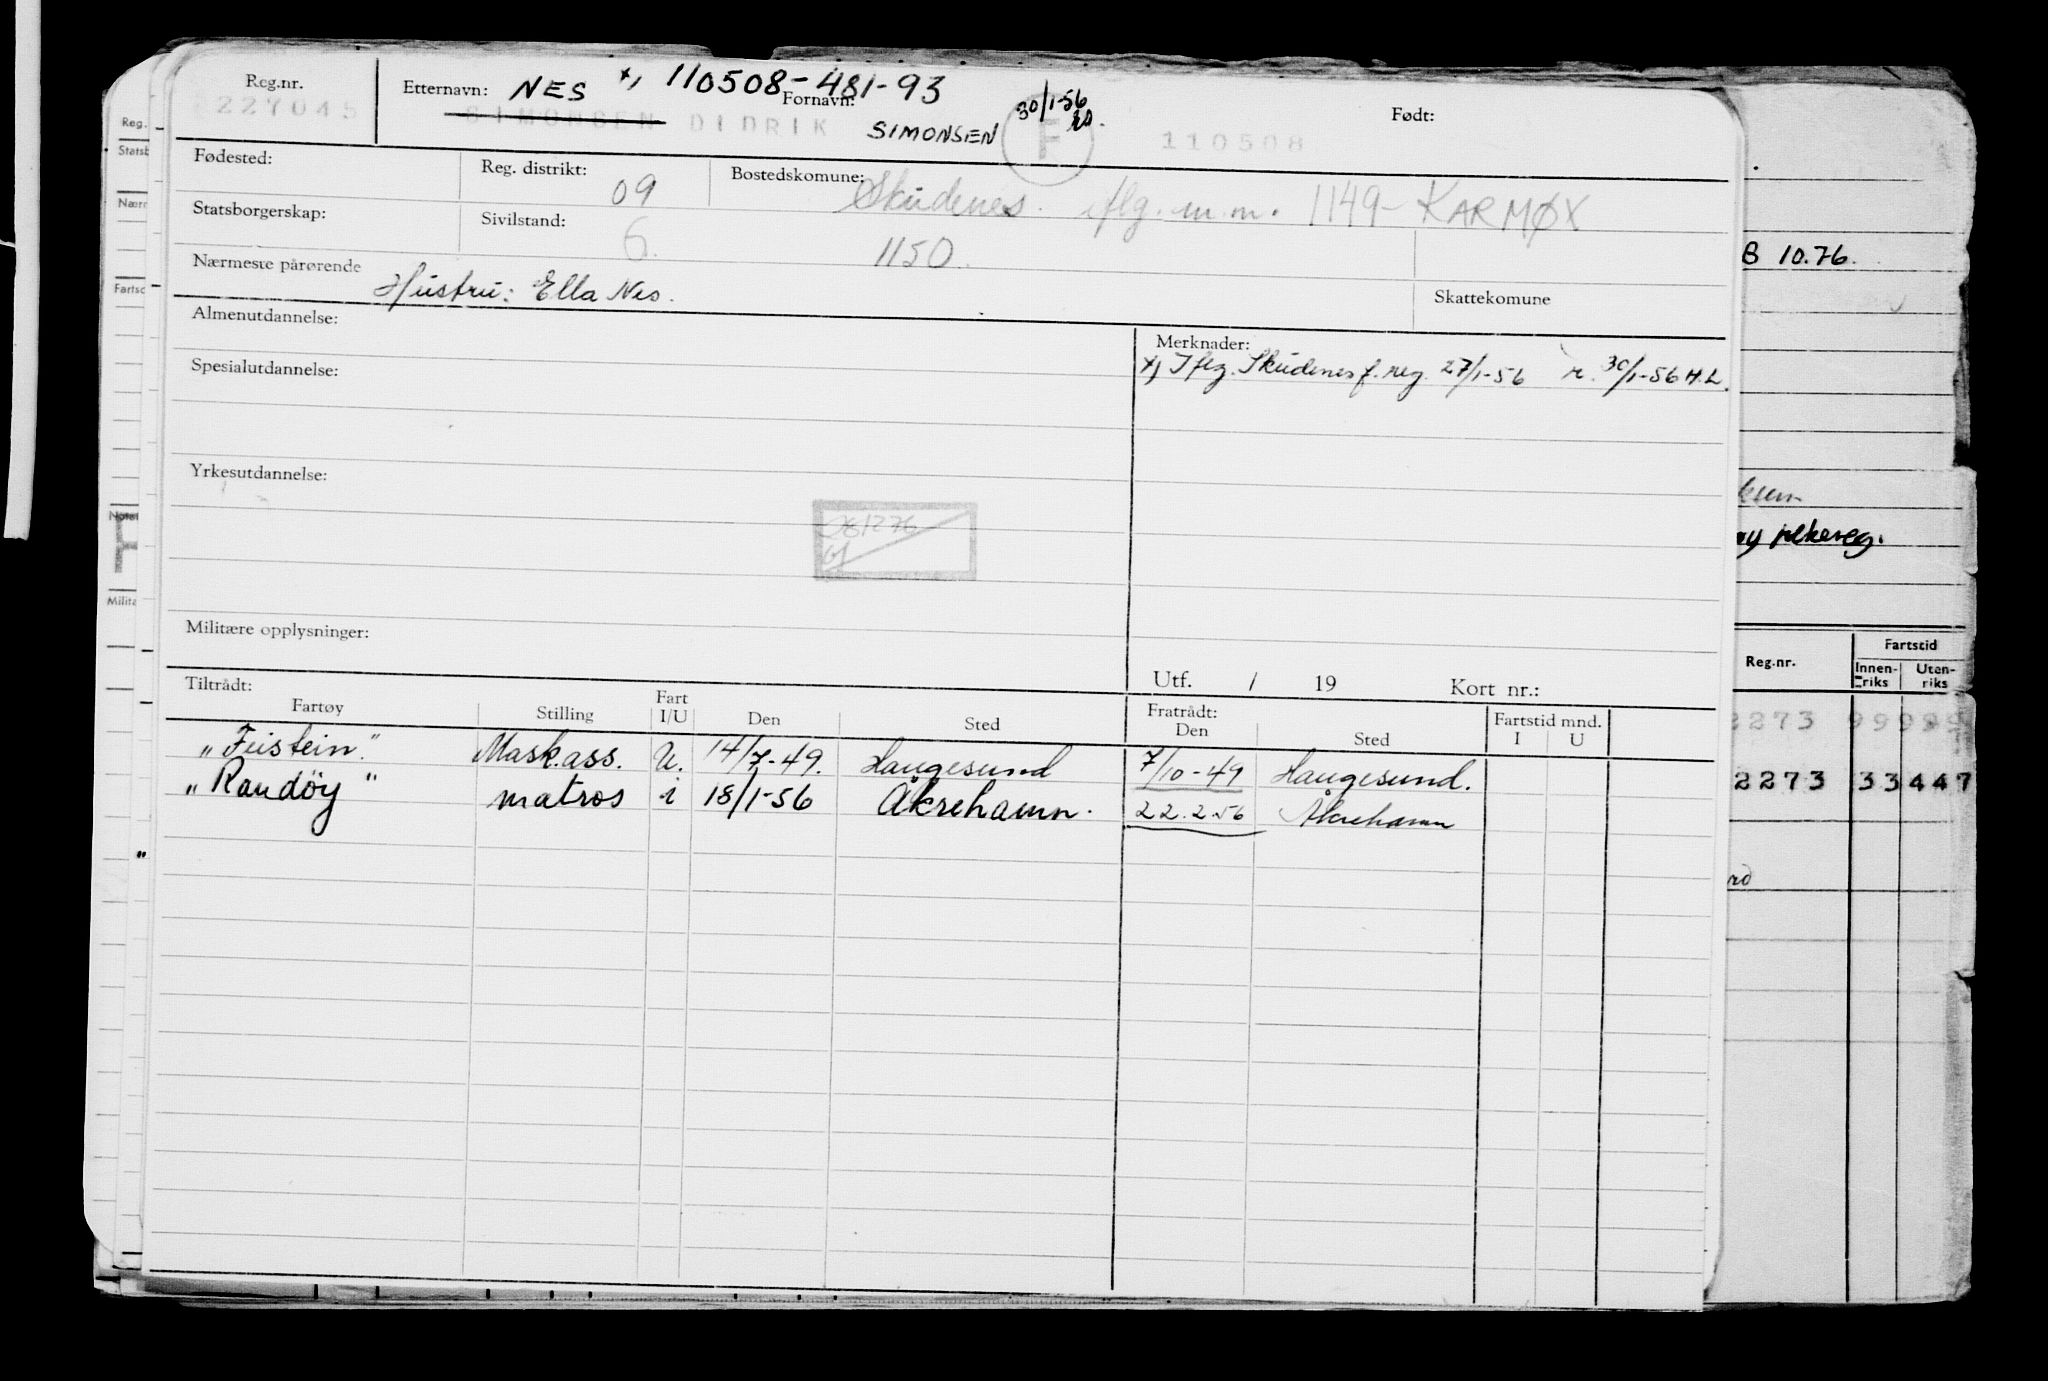 Reg.nr. Etternavn: NES x, 110508-481-93 Fornavn: 30/1-56 Født:
227045 SIMONSEN DIDRIK SIMONSEN F 110508
Fødested: Reg. distrikt: 09 Bostedskomune: Skudenes. iflg. m.m. 1149- KARMØY
Statsborgerskap: Sivilstand: 6. 1150.
Nærmeste pårørende Hustru: Ella Nes. Skattekomune
Almenutdannelse: Merknader:
x) Iflg. Skudenes f.reg. 27/1-56 r. 30/1-56 H.L.
Spesialutdannelse:
Yrkesutdannelse:
281276
Militære opplysninger:
Utf. / 19 Kort nr.:
Tiltrådt: Fratrådt: Fartstid mnd.
Fartøy Stilling Fart I/U Den Sted Den Sted I U
"Feistein." Mask.ass. U. 14/7-49. Haugesund 7/10-49 Haugesund.
"Randöy" matros i 18/1-56 Åkrehamn. 22.2.56 Åkrehamn
Reg.
Statsb
Nærn
Fartsc
Notat
Milita
"
B 10.76.
kum
ny pekereg.
Reg.nr. Fartstid
Innen-riks Uten-riks
2273 99999
2273 33447
rd